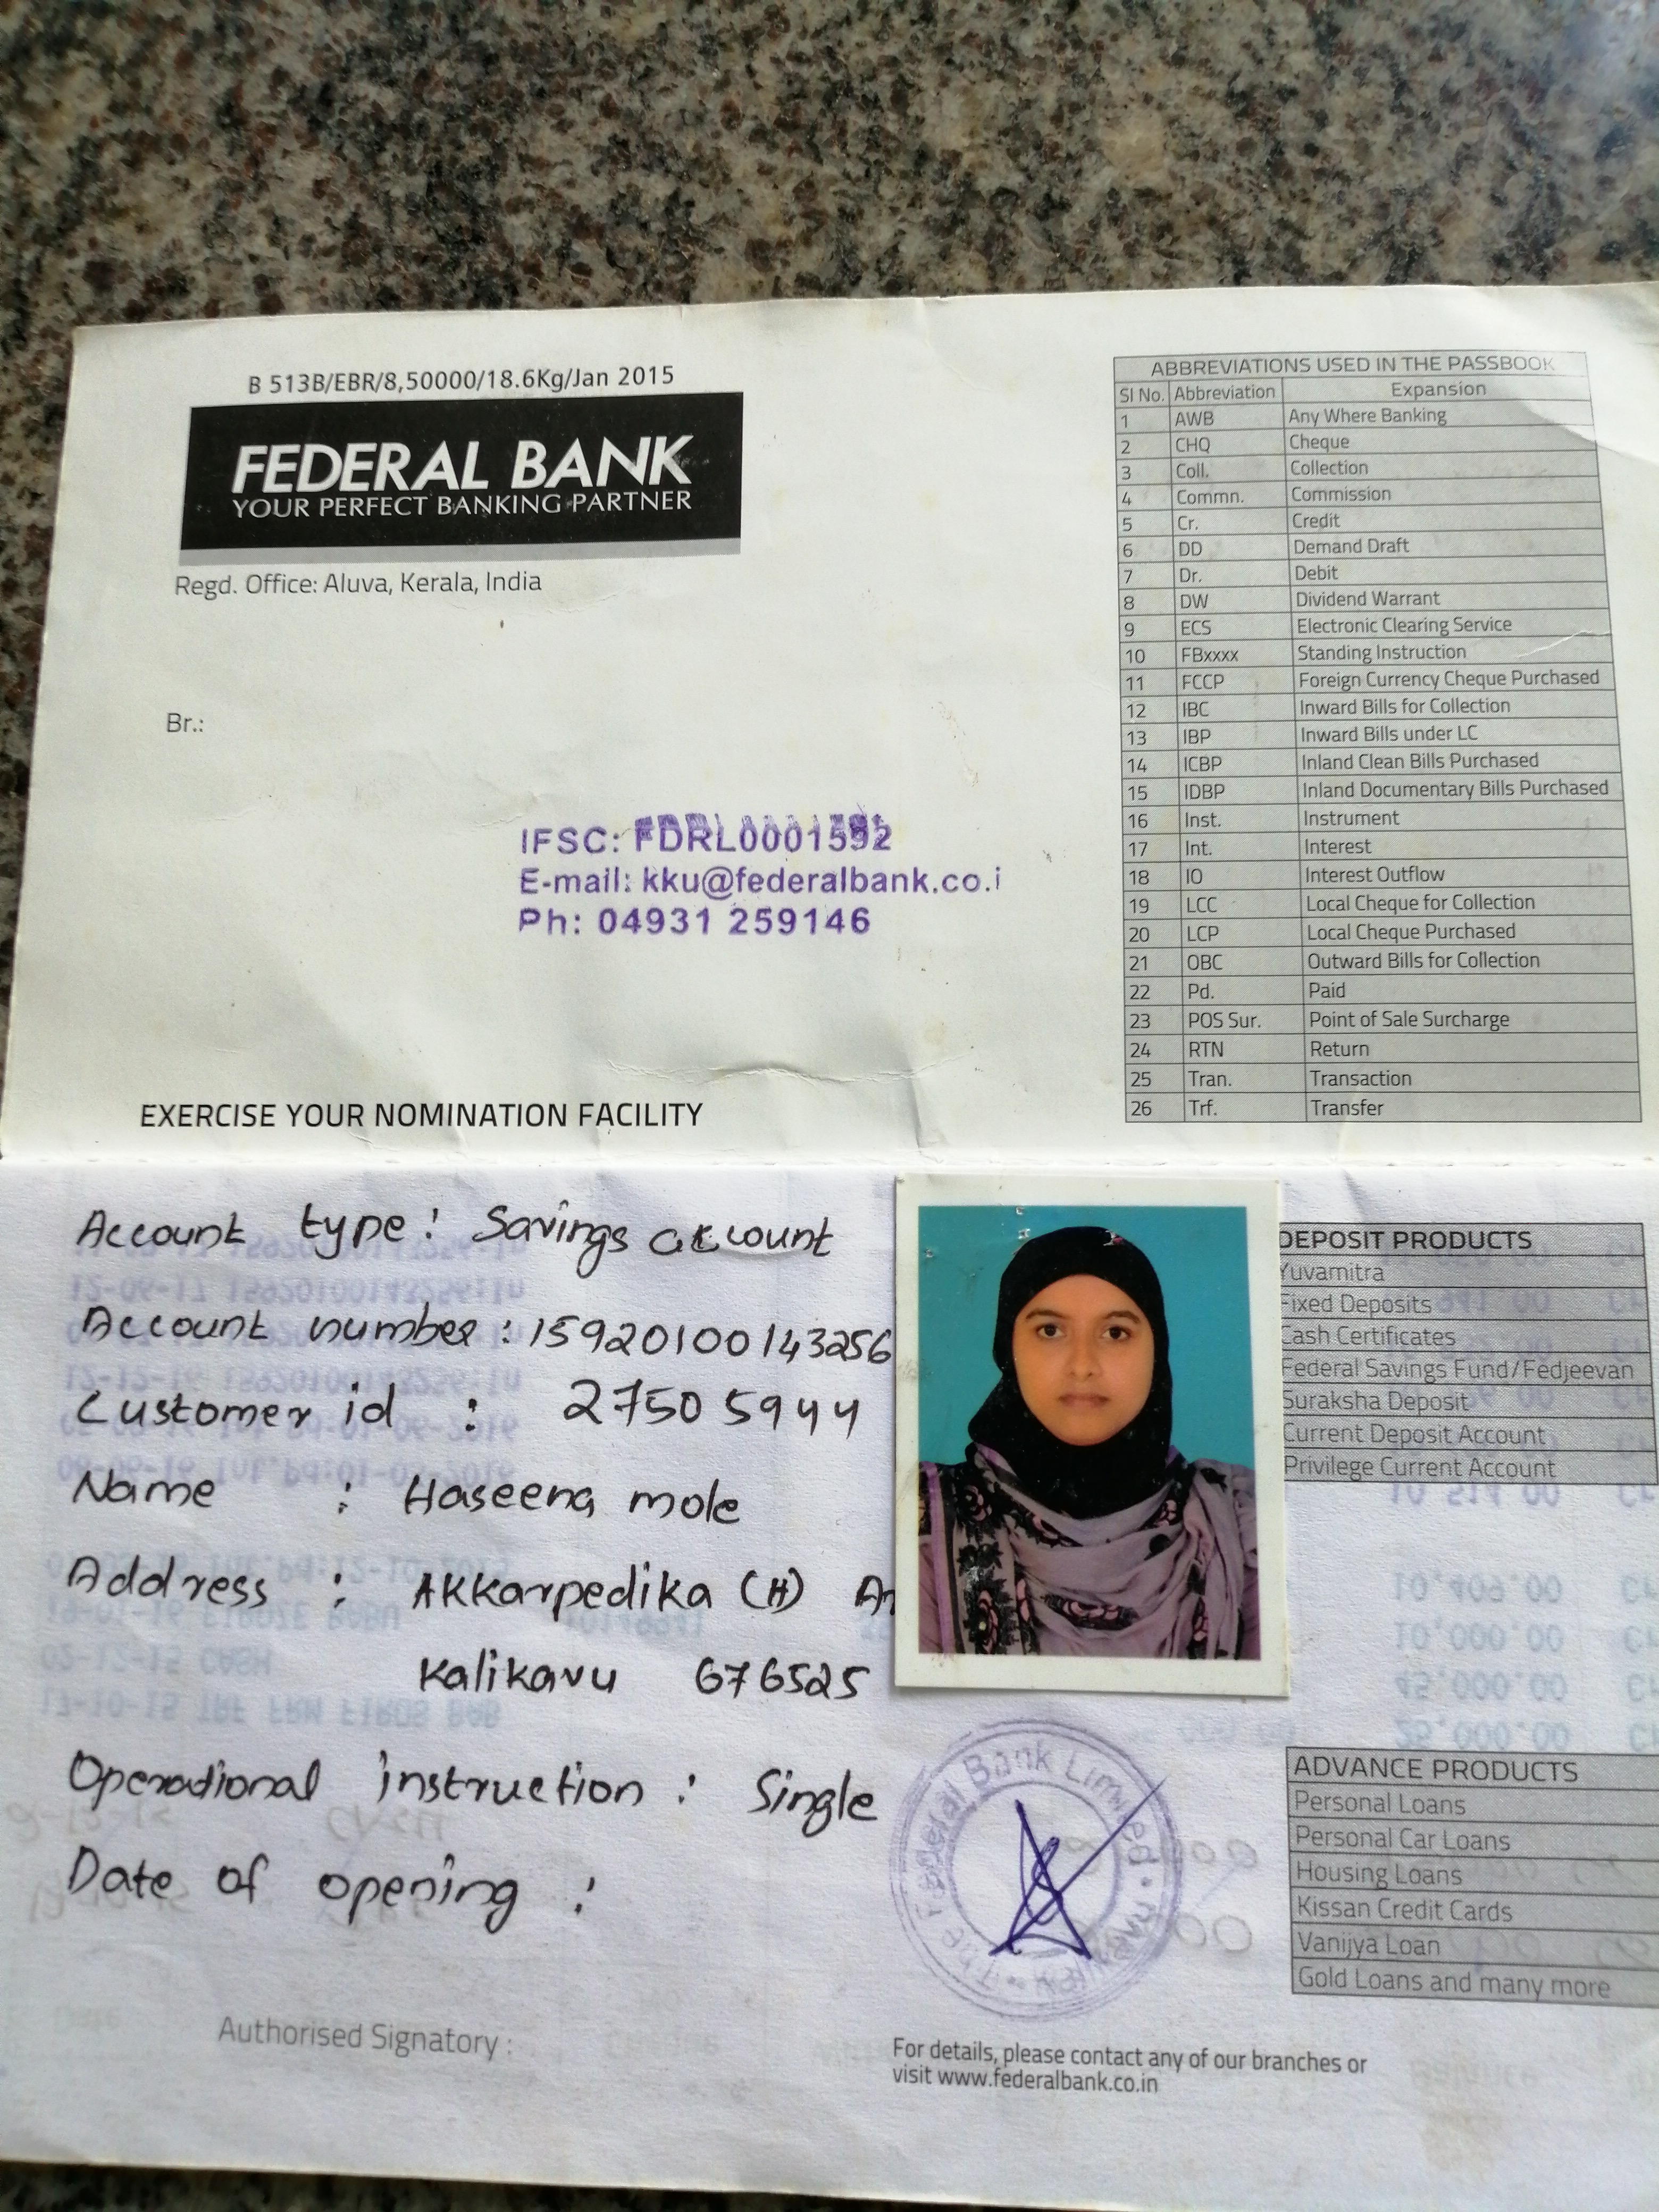 B 513B/EBR/8,50000/18.6Kg/Jan 2015
FEDERAL BANK
YOUR PERFECT BANKING PARTNER
Regd. Office: Aluva, Kerala, India
Br.:
IFSC: FDRL0001592
E-mail: kku@federalbank.co.i
Ph: 04931 259146
EXERCISE YOUR NOMINATION FACILITY
ABBREVIATIONS USED IN THE PASSBOOK
Sl No. Abbreviation Expansion
1 AWB Any Where Banking
2 CHQ Cheque
3 Coll. Collection
4 Commn. Commission
5 Cr. Credit
6 DD Demand Draft
7 Dr. Debit
8 DW Dividend Warrant
9 ECS Electronic Clearing Service
10 FBxxxx Standing Instruction
11 FCCP Foreign Currency Cheque Purchased
12 IBC Inward Bills for Collection
13 IBP Inward Bills under LC
14 ICBP Inland Clean Bills Purchased
15 IDBP Inland Documentary Bills Purchased
16 Inst. Instrument
17 Int. Interest
18 IO Interest Outflow
19 LCC Local Cheque for Collection
20 LCP Local Cheque Purchased
21 OBC Outward Bills for Collection
22 Pd. Paid
23 POS Sur. Point of Sale Surcharge
24 RTN Return
25 Tran. Transaction
26 Trf. Transfer
Account type : Savings account
Account number : 15920100143256
Customer id : 27505944
Name : Haseena mole
Address : Akkarpedika (H) An
Kalikavu 676525
Operational instruction : Single
Date of opening :
Authorised Signatory :
Federal Bank Limited
DEPOSIT PRODUCTS
Yuvamitra
Fixed Deposits
Cash Certificates
Federal Savings Fund/Fedjeevan
Suraksha Deposit
Current Deposit Account
Privilege Current Account
ADVANCE PRODUCTS
Personal Loans
Personal Car Loans
Housing Loans
Kissan Credit Cards
Vanijya Loan
Gold Loans and many more
For details, please contact any of our branches or
visit www.federalbank.co.in